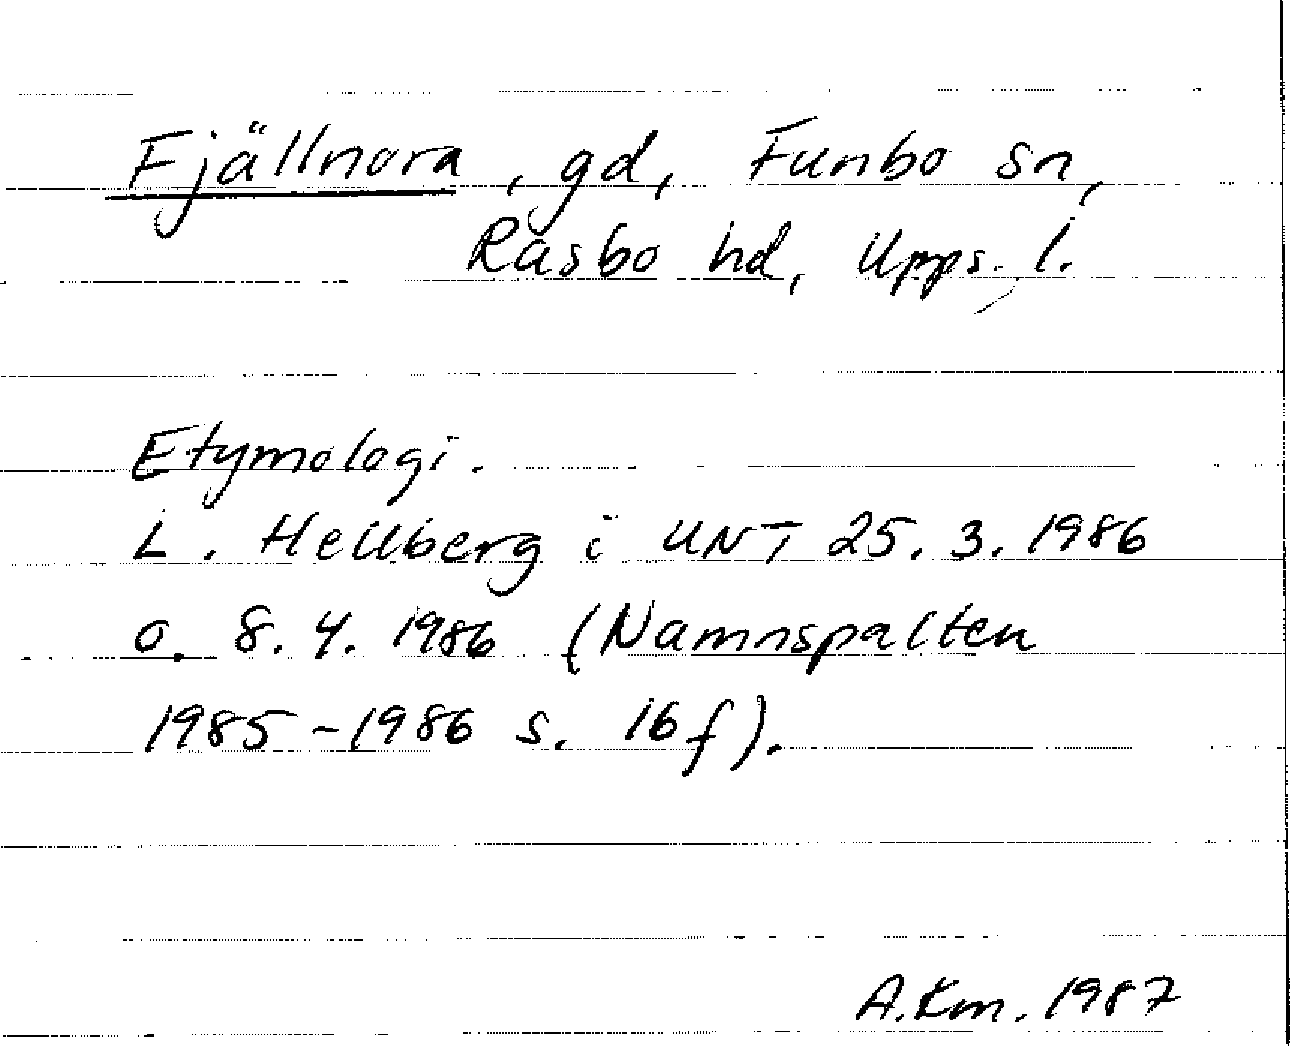 Fjällnora, gd, Funbo sn,
Rasbo hd, Upps. l.
Etymologi.
L. Hellberg i UNT 25.3.1986
o. 8.4.1986 (Namnspalten
1985-1986 s. 16f).
A.Km. 1987